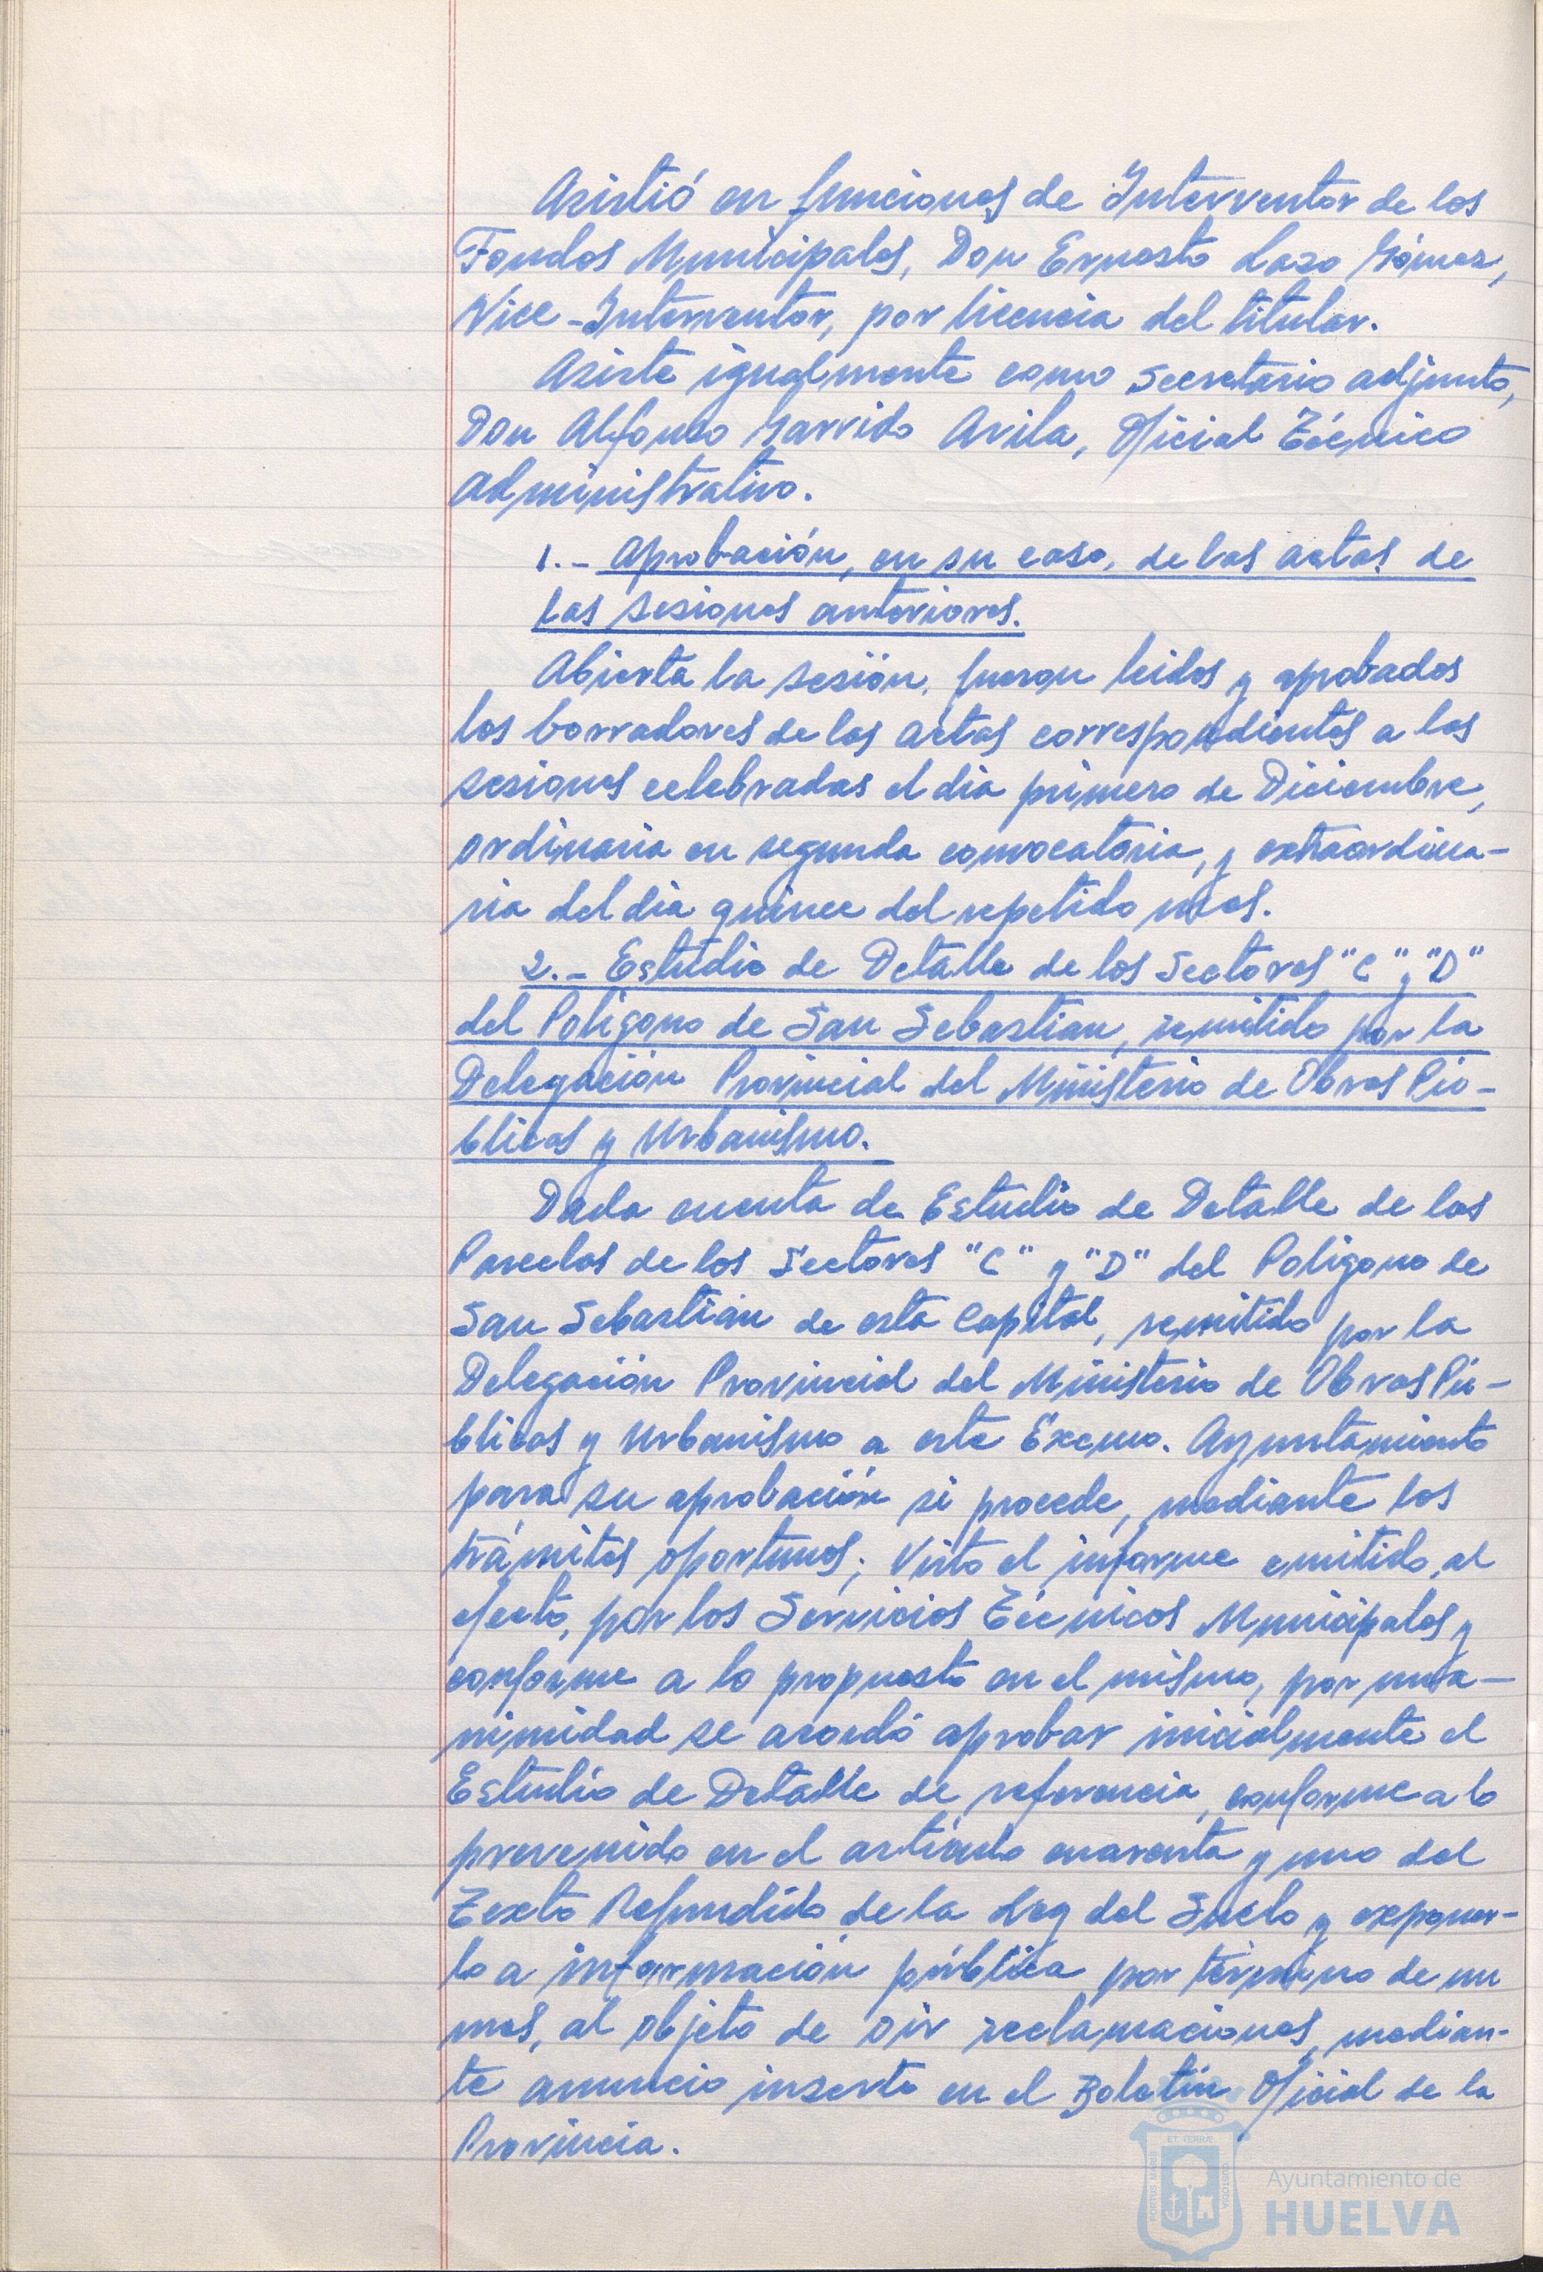 Asistió en funciones de Interventor de los
Fondos Municipales, Don Ernesto Lazo Gómez,
Vice-Interventor, por licencia del titular.
Asiste igualmente como Secretario adjunto,
Don Alfonso Garrido Avila, Oficial Técnico
administrativo.
1.- Aprobación, en su caso, de las actas de
las sesiones anteriores.
Abierta la sesión, fueron leidos y aprobados
los borradores de las actas correspondientes a las
sesiones celebradas el dia primero de Diciembre,
ordinaria en segunda convocatoria, y extraordina-
ria del dia quince del repetido mes.
2.- Estudio de Detalle de los Sectores "C" y "D"
del Poligono de San Sebastian, remitido por la
Delegación Provincial del Ministerio de Obras Pú-
blicas y Urbanismo.
Dada cuenta de Estudio de Detalle de las
Parcelas de los Sectores "C" y "D" del Poligono de
San Sebastián de esta Capital, remitido por la
Delegación Provincial del Ministerio de Obras Pú-
blicas y Urbanismo a este Excmo. Ayuntamiento
para su aprobación si procede, mediante los
trámites oportunos; Visto el informe emitido, al
efecto, por los Servicios Técnicos Municipales y
conforme a lo propuesto en el mismo, por una-
nimidad se acordó aprobar inicialmente el
Estudio de Detalle de referencia, conforme a lo
prevenido en el artículo cuarenta y uno del
Texto Refundido de la Ley del Suelo y exponer-
lo a información pública por término de un
mes, al objeto de oir reclamaciones, median-
te anuncio inserto en el Boletín Oficial de la
Provincia.
Ayuntamiento de
HUELVA